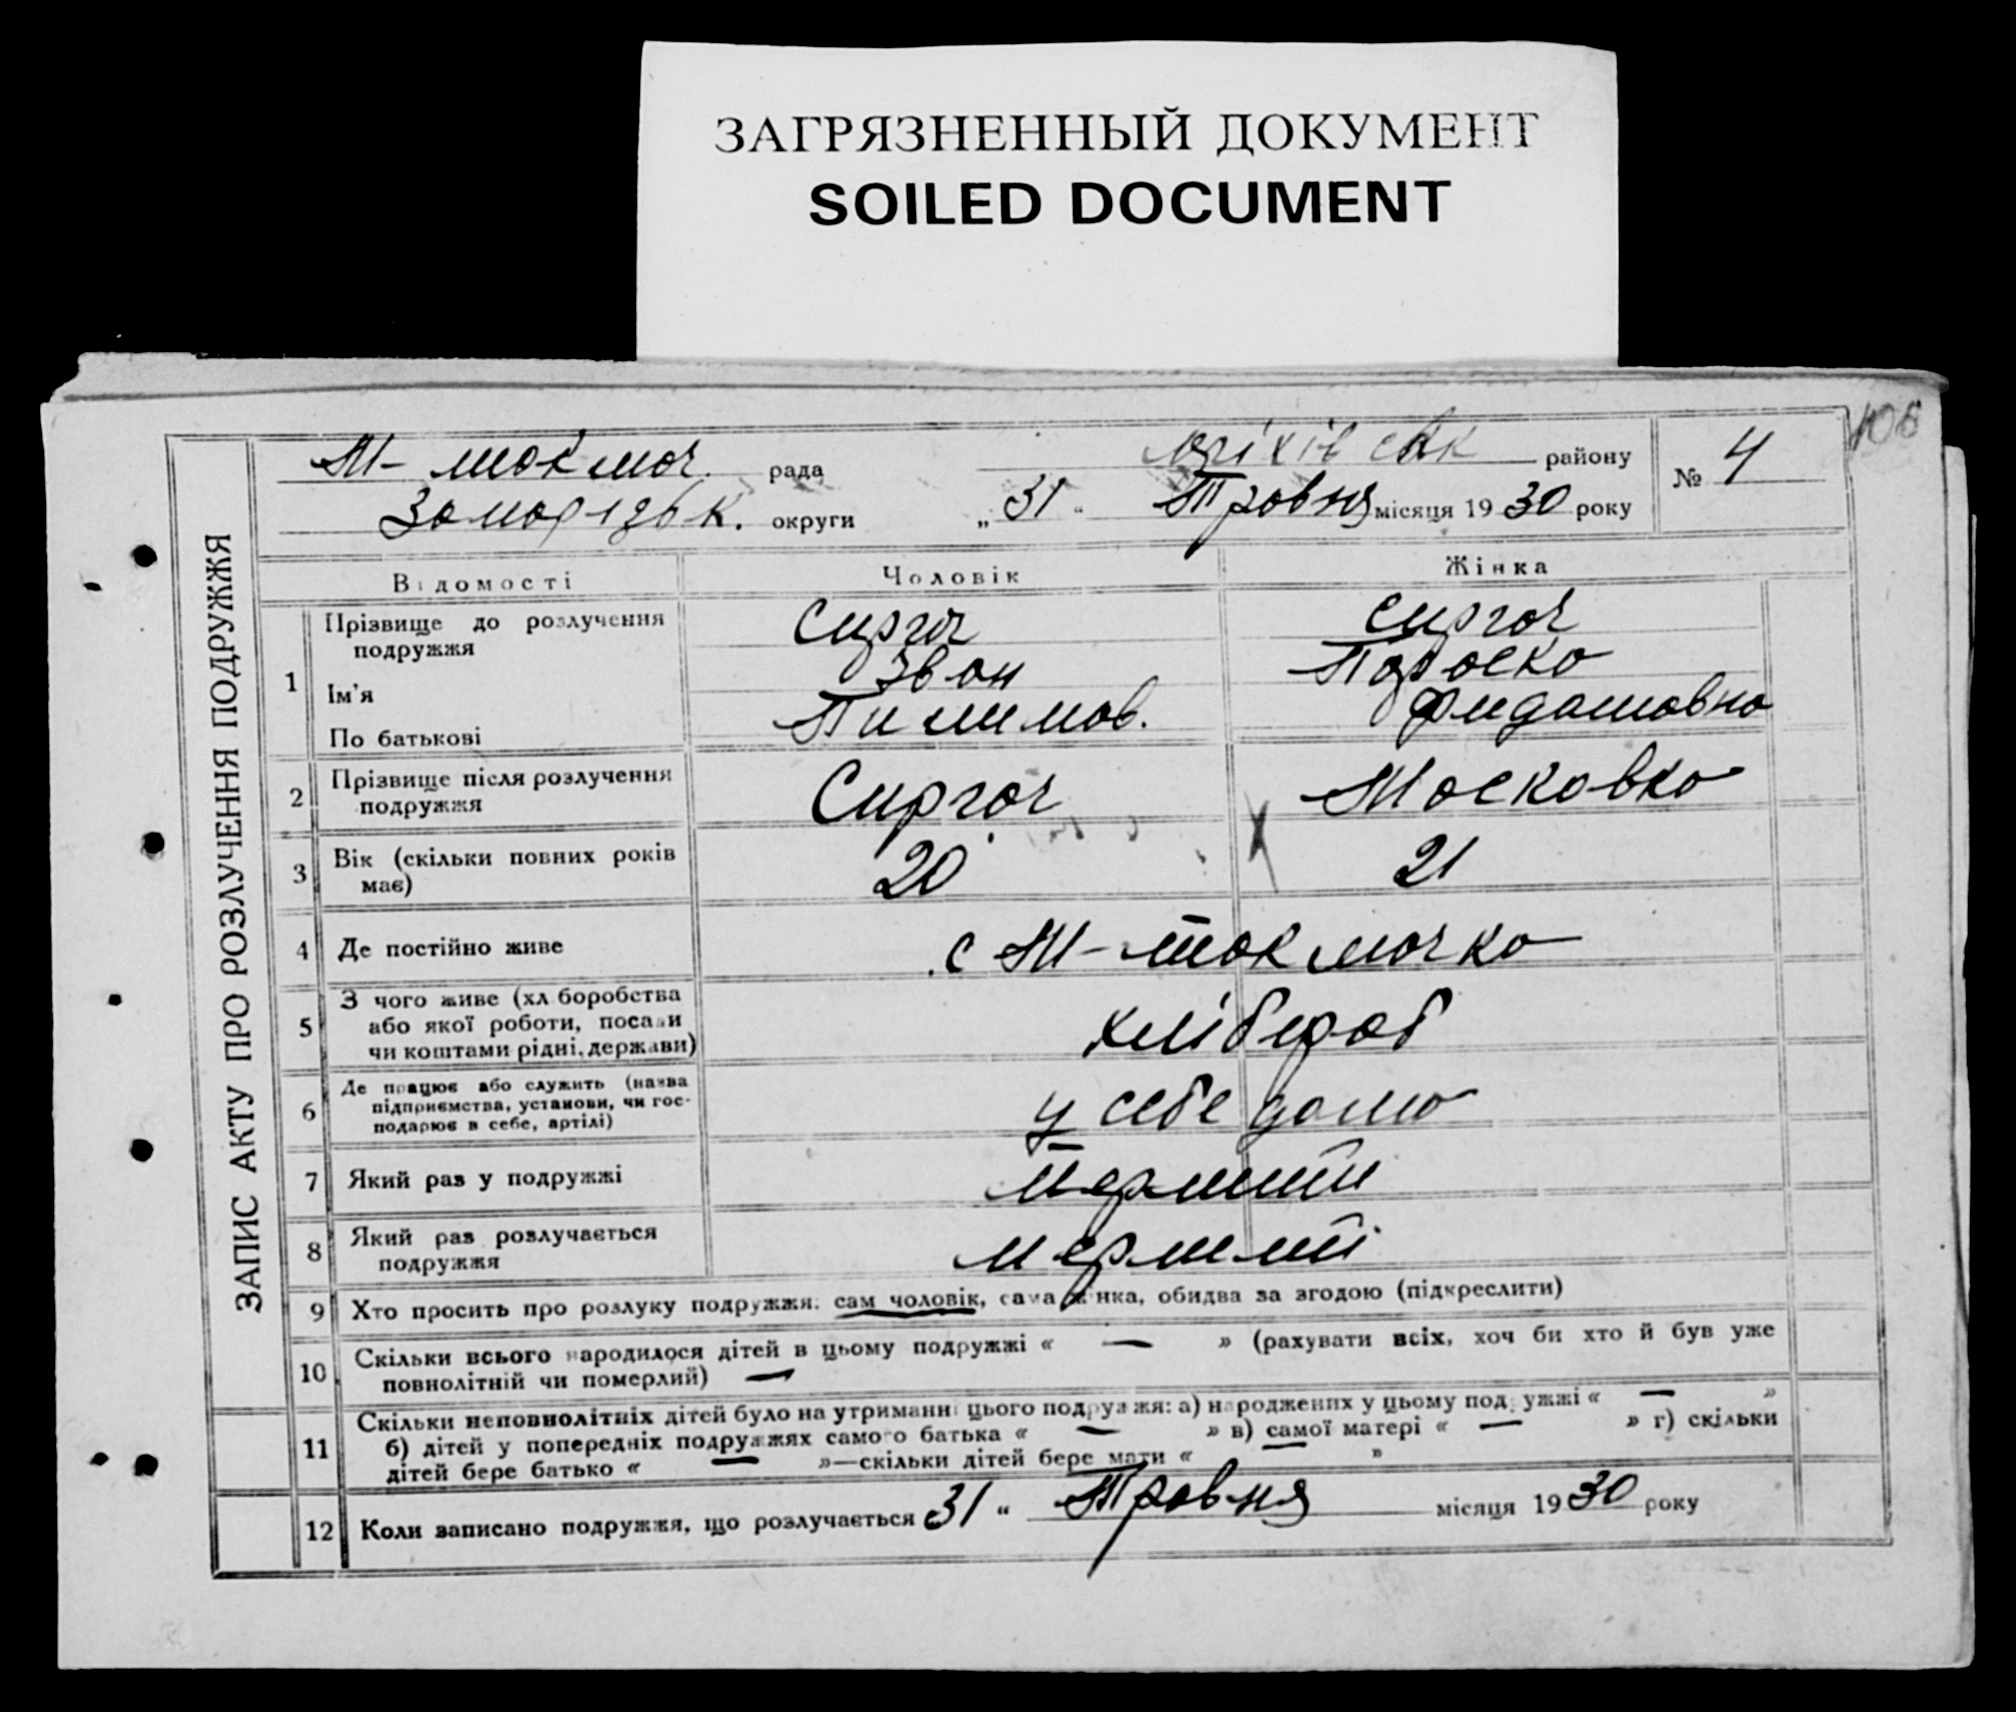 ЗАГРЯЗНЕННЫЙ ДОКУМЕНТ
SOILED DOCUMENT
106
ЗАПИС АКТУ ПРО РОЗЛУЧЕННЯ ПОДРУЖЖЯ
М-Токмач. рада оріхівськ району № 4
Запорізьк. округи „31“ Травня місяця 1930 року
Відомості Чоловік Жінка
1 Прізвище до розлучення подружжя Сиргач Сиргач
Ім'я Іван Параска
По батькові Пилипов.
2 Прізвище після розлучення подружжя Сиргач Московка
3 Вік (скільки повних років має) 20 21
4 Де постійно живе с М-Токмачка
5 З чого живе (хлiборобства або якої роботи, посади чи коштами рідні, держави) хлібероб
6 Де працює або служить (назва підприємства, установи, чи господарює в себе, артілі) у себе дома
7 Який раз у подружжі
8 Який раз розлучається подружжя
9 Хто просить про розлуку подружжя: сам чоловік, сама жінка, обидва за згодою (підкреслити)
10 Скільки всього народилося дітей в цьому подружжі « — » (рахувати всіх, хоч би хто й був уже
повнолітній чи померлий) —
11 Скільки неповнолітніх дітей було на утриманні цього подружжя: а) народжених у цьому подружжі « — »
б) дітей у попередніх подружжях самого батька « — » в) самої матері « — » г) скільки
дітей бере батько « — »—скільки дітей бере мати « »
12 Коли записано подружжя, що розлучається 31 “ Травня місяця 1930 року